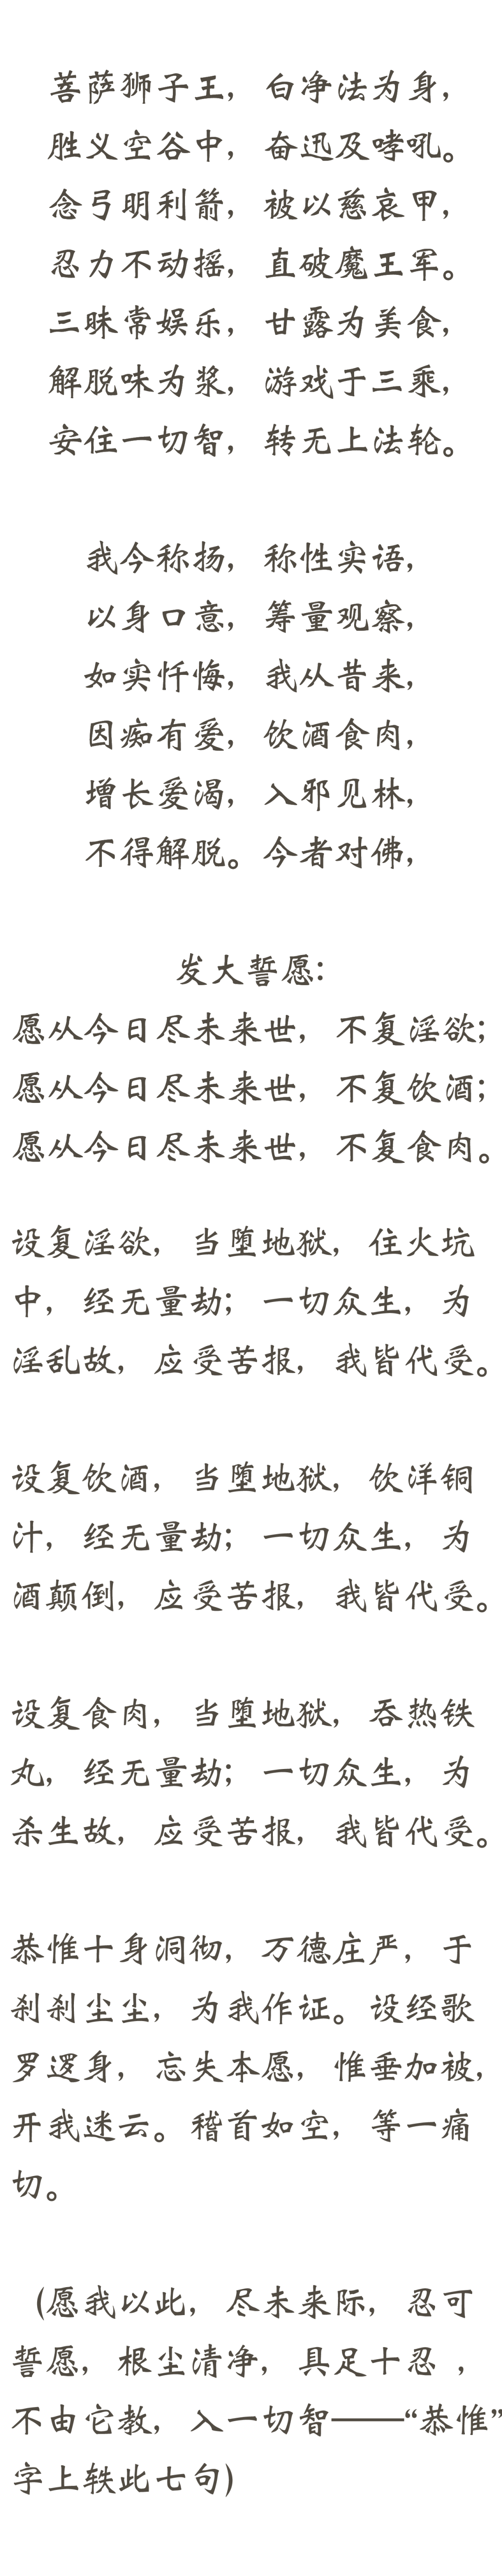 菩萨狮子王，白净法为身，
胜义空谷中，奋迅及哮吼。
念弓明利箭，被以慈哀甲，
忍力不动摇，直破魔王军。
三昧常娱乐，甘露为美食，
解脱味为浆，游戏于三乘，
安住一切智，转无上法轮。
我今称扬，称性实语，
以身口意，筹量观察，
如实忏悔，我从昔来，
因痴有爱，饮酒食肉，
增长爱渴，入邪见林，
不得解脱。今者对佛，
发大誓愿：
愿从今日尽未来世，不复淫欲；
愿从今日尽未来世，不复饮酒；
愿从今日尽未来世，不复食肉。
设复淫欲，当堕地狱，住火坑
中，经无量劫；一切众生，为
淫乱故，应受苦报，我皆代受。
设复饮酒，当堕地狱，饮洋铜
汁，经无量劫；一切众生，为
酒颠倒，应受苦报，我皆代受。
设复食肉，当堕地狱，吞热铁
丸，经无量劫；一切众生，为
杀生故，应受苦报，我皆代受。
恭惟十身洞彻，万德庄严，于
刹刹尘尘，为我作证。设经歌
罗逻身，忘失本愿，惟垂加被，
开我迷云。稽首如空，等一痛
切。
（愿我以此，尽未来际，忍可
誓愿，根尘清净，具足十忍，
不由它教，入一切智——“恭惟”
字上轶此七句）